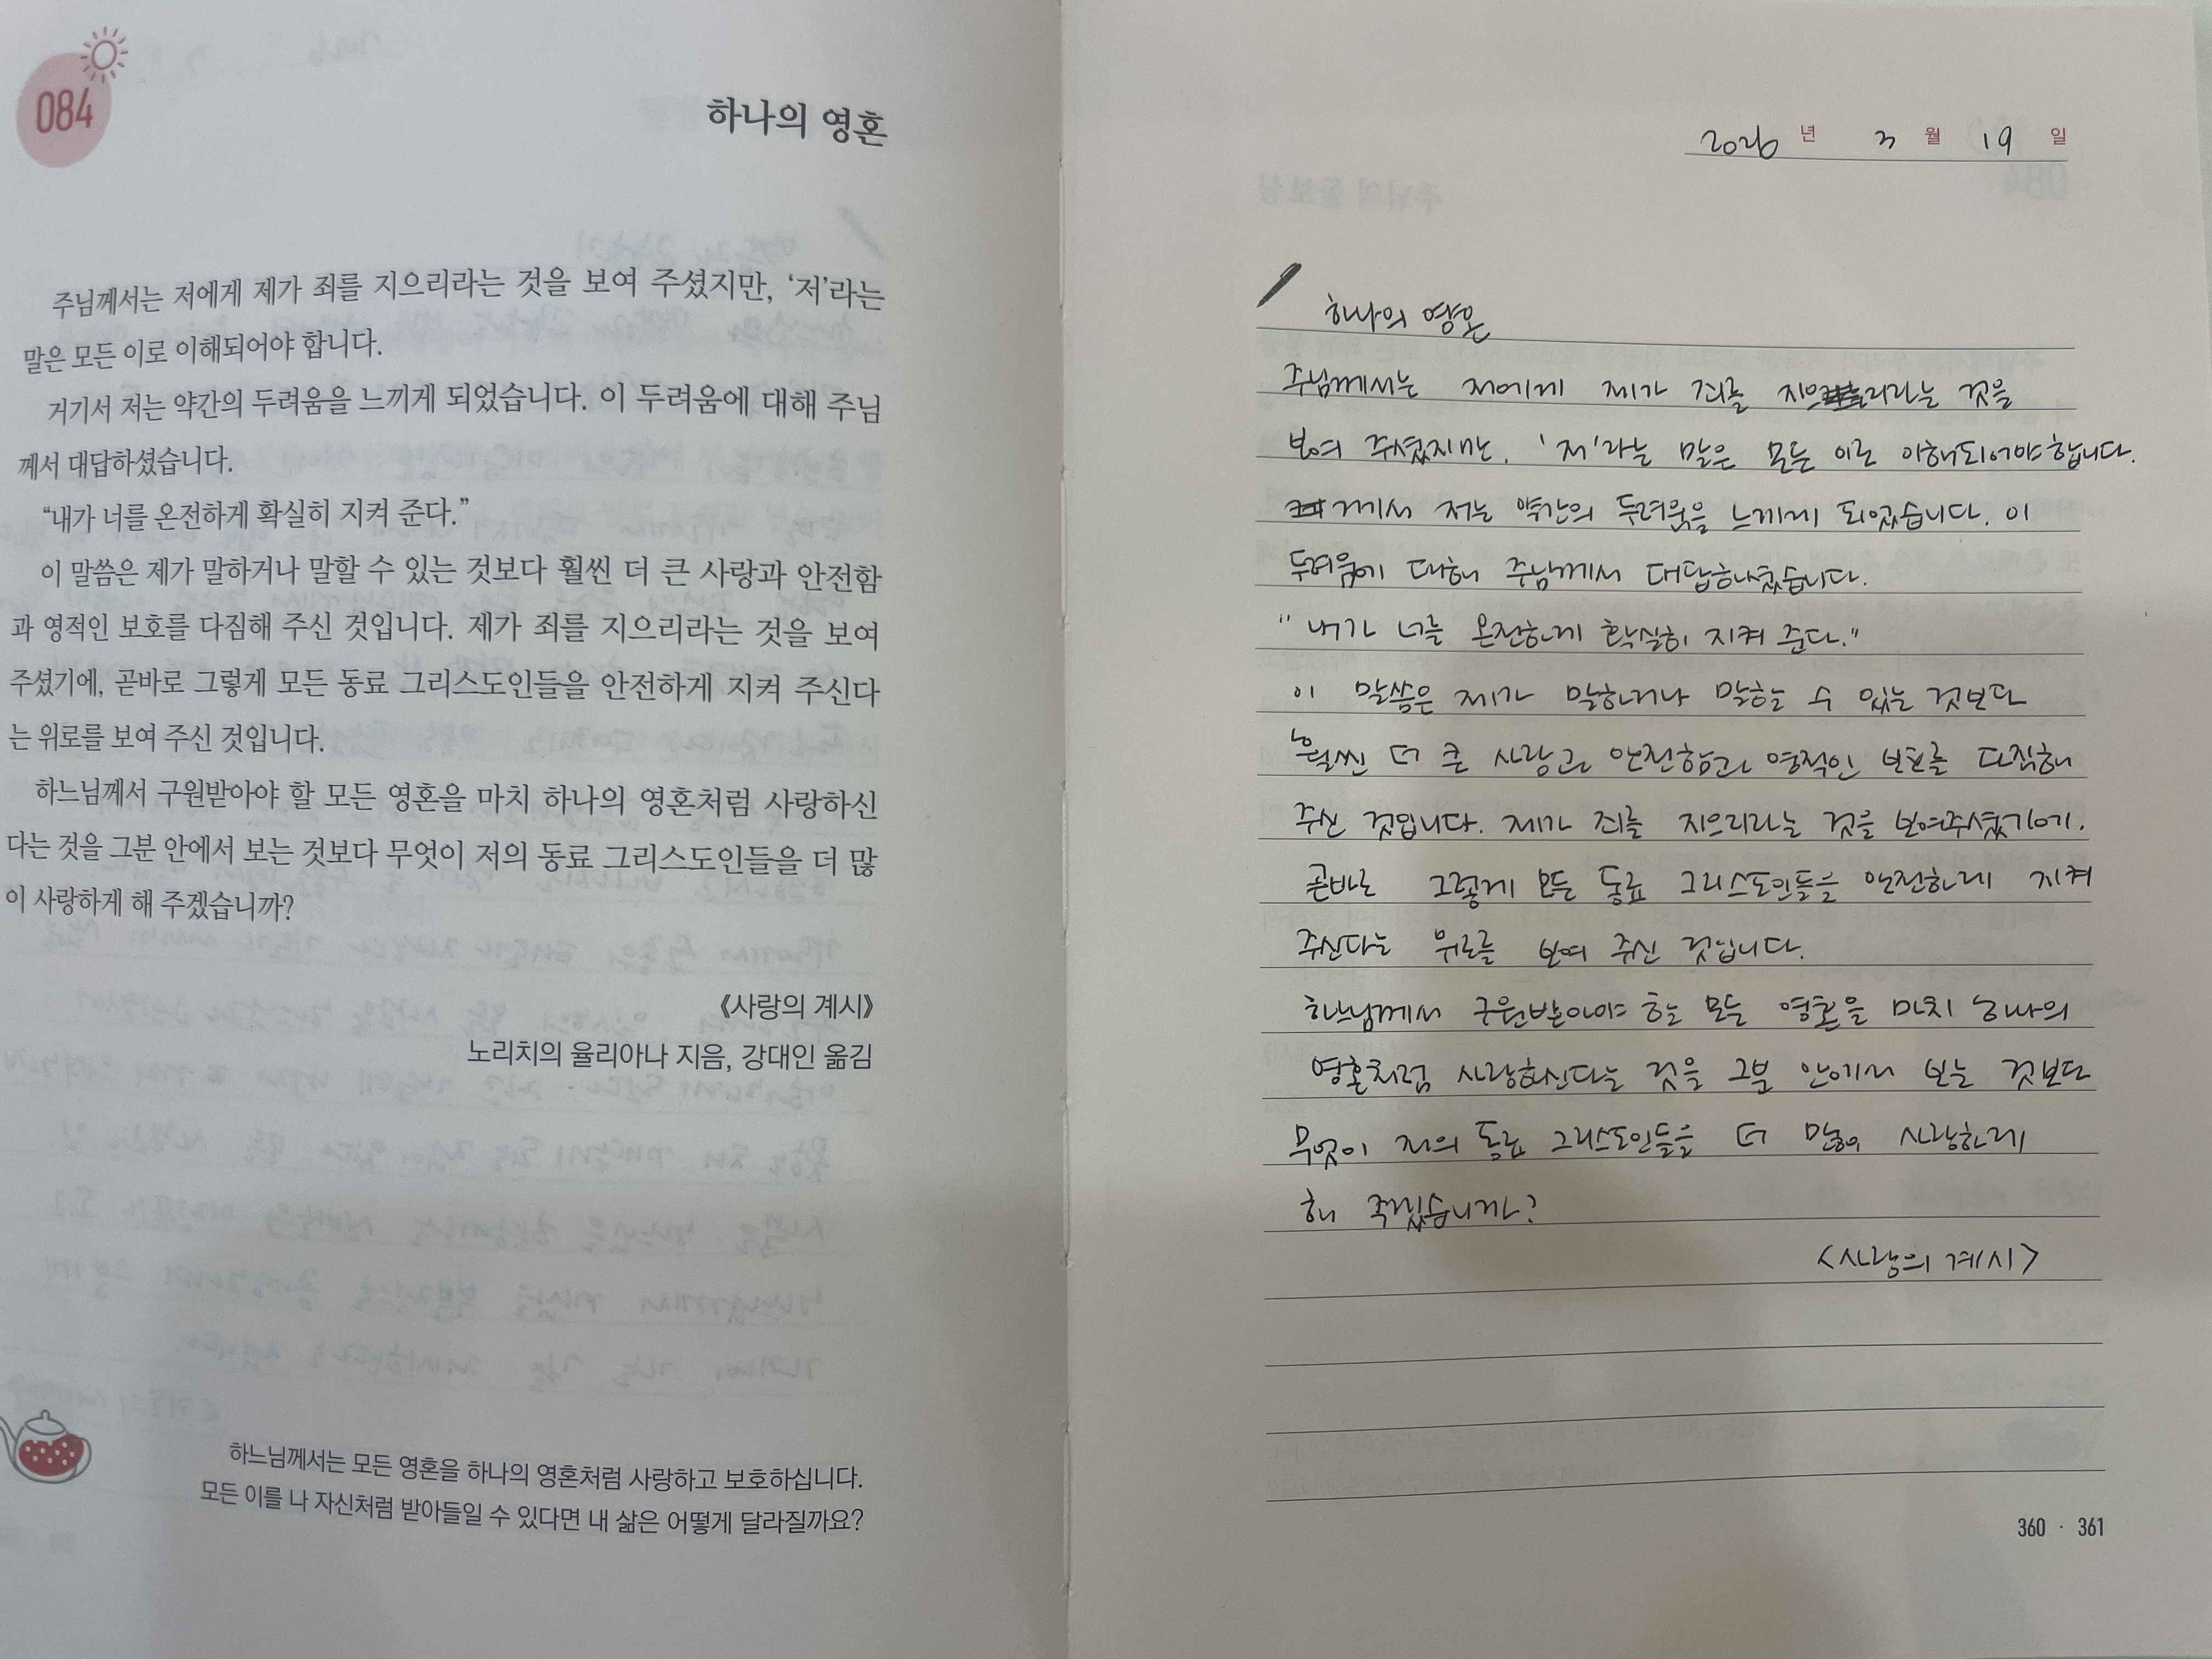 084
하나의 영혼
주님께서는 저에게 제가 죄를 지으리라는 것을 보여 주셨지만, ‘저’라는
말은 모든 이로 이해되어야 합니다.
거기서 저는 약간의 두려움을 느끼게 되었습니다. 이 두려움에 대해 주님
께서 대답하셨습니다.
“내가 너를 온전하게 확실히 지켜 준다.”
이 말씀은 제가 말하거나 말할 수 있는 것보다 훨씬 더 큰 사랑과 안전함
과 영적인 보호를 다짐해 주신 것입니다. 제가 죄를 지으리라는 것을 보여
주셨기에, 곧바로 그렇게 모든 동료 그리스도인들을 안전하게 지켜 주신다
는 위로를 보여 주신 것입니다.
하느님께서 구원받아야 할 모든 영혼을 마치 하나의 영혼처럼 사랑하신
다는 것을 그분 안에서 보는 것보다 무엇이 저의 동료 그리스도인들을 더 많
이 사랑하게 해 주겠습니까?
《사랑의 계시》
노리치의 율리아나 지음, 강대인 옮김
하느님께서는 모든 영혼을 하나의 영혼처럼 사랑하고 보호하십니다.
모든 이를 나 자신처럼 받아들일 수 있다면 내 삶은 어떻게 달라질까요?
2026 년 3 월 19 일
하나의 영혼
주님께서는 저에게 제가 죄를 지으리라는 것을
보여 주셨지만, '저'라는 말은 모든 이로 이해되어야합니다.
거기서 저는 약간의 두려움을 느끼게 되었습니다. 이
두려움에 대해 주님께서 대답하셨습니다.
"내가 너를 온전하게 확실히 지켜 준다."
이 말씀은 제가 말하거나 말할 수 있는 것보다
훨씬 더 큰 사랑과 안전함과 영적인 보호를 다짐해
주신 것입니다. 제가 죄를 지으리라는 것을 보여주셨기에,
곧바로 그렇게 모든 동료 그리스도인들을 안전하게 지켜
주신다는 위로를 보여 주신 것입니다.
하느님께서 구원받아야 할 모든 영혼을 마치 하나의
영혼처럼 사랑하신다는 것을 그분 안에서 보는 것보다
무엇이 저의 동료 그리스도인들을 더 많이 사랑하게
해 주겠습니까?
<사랑의 계시>
360 · 361